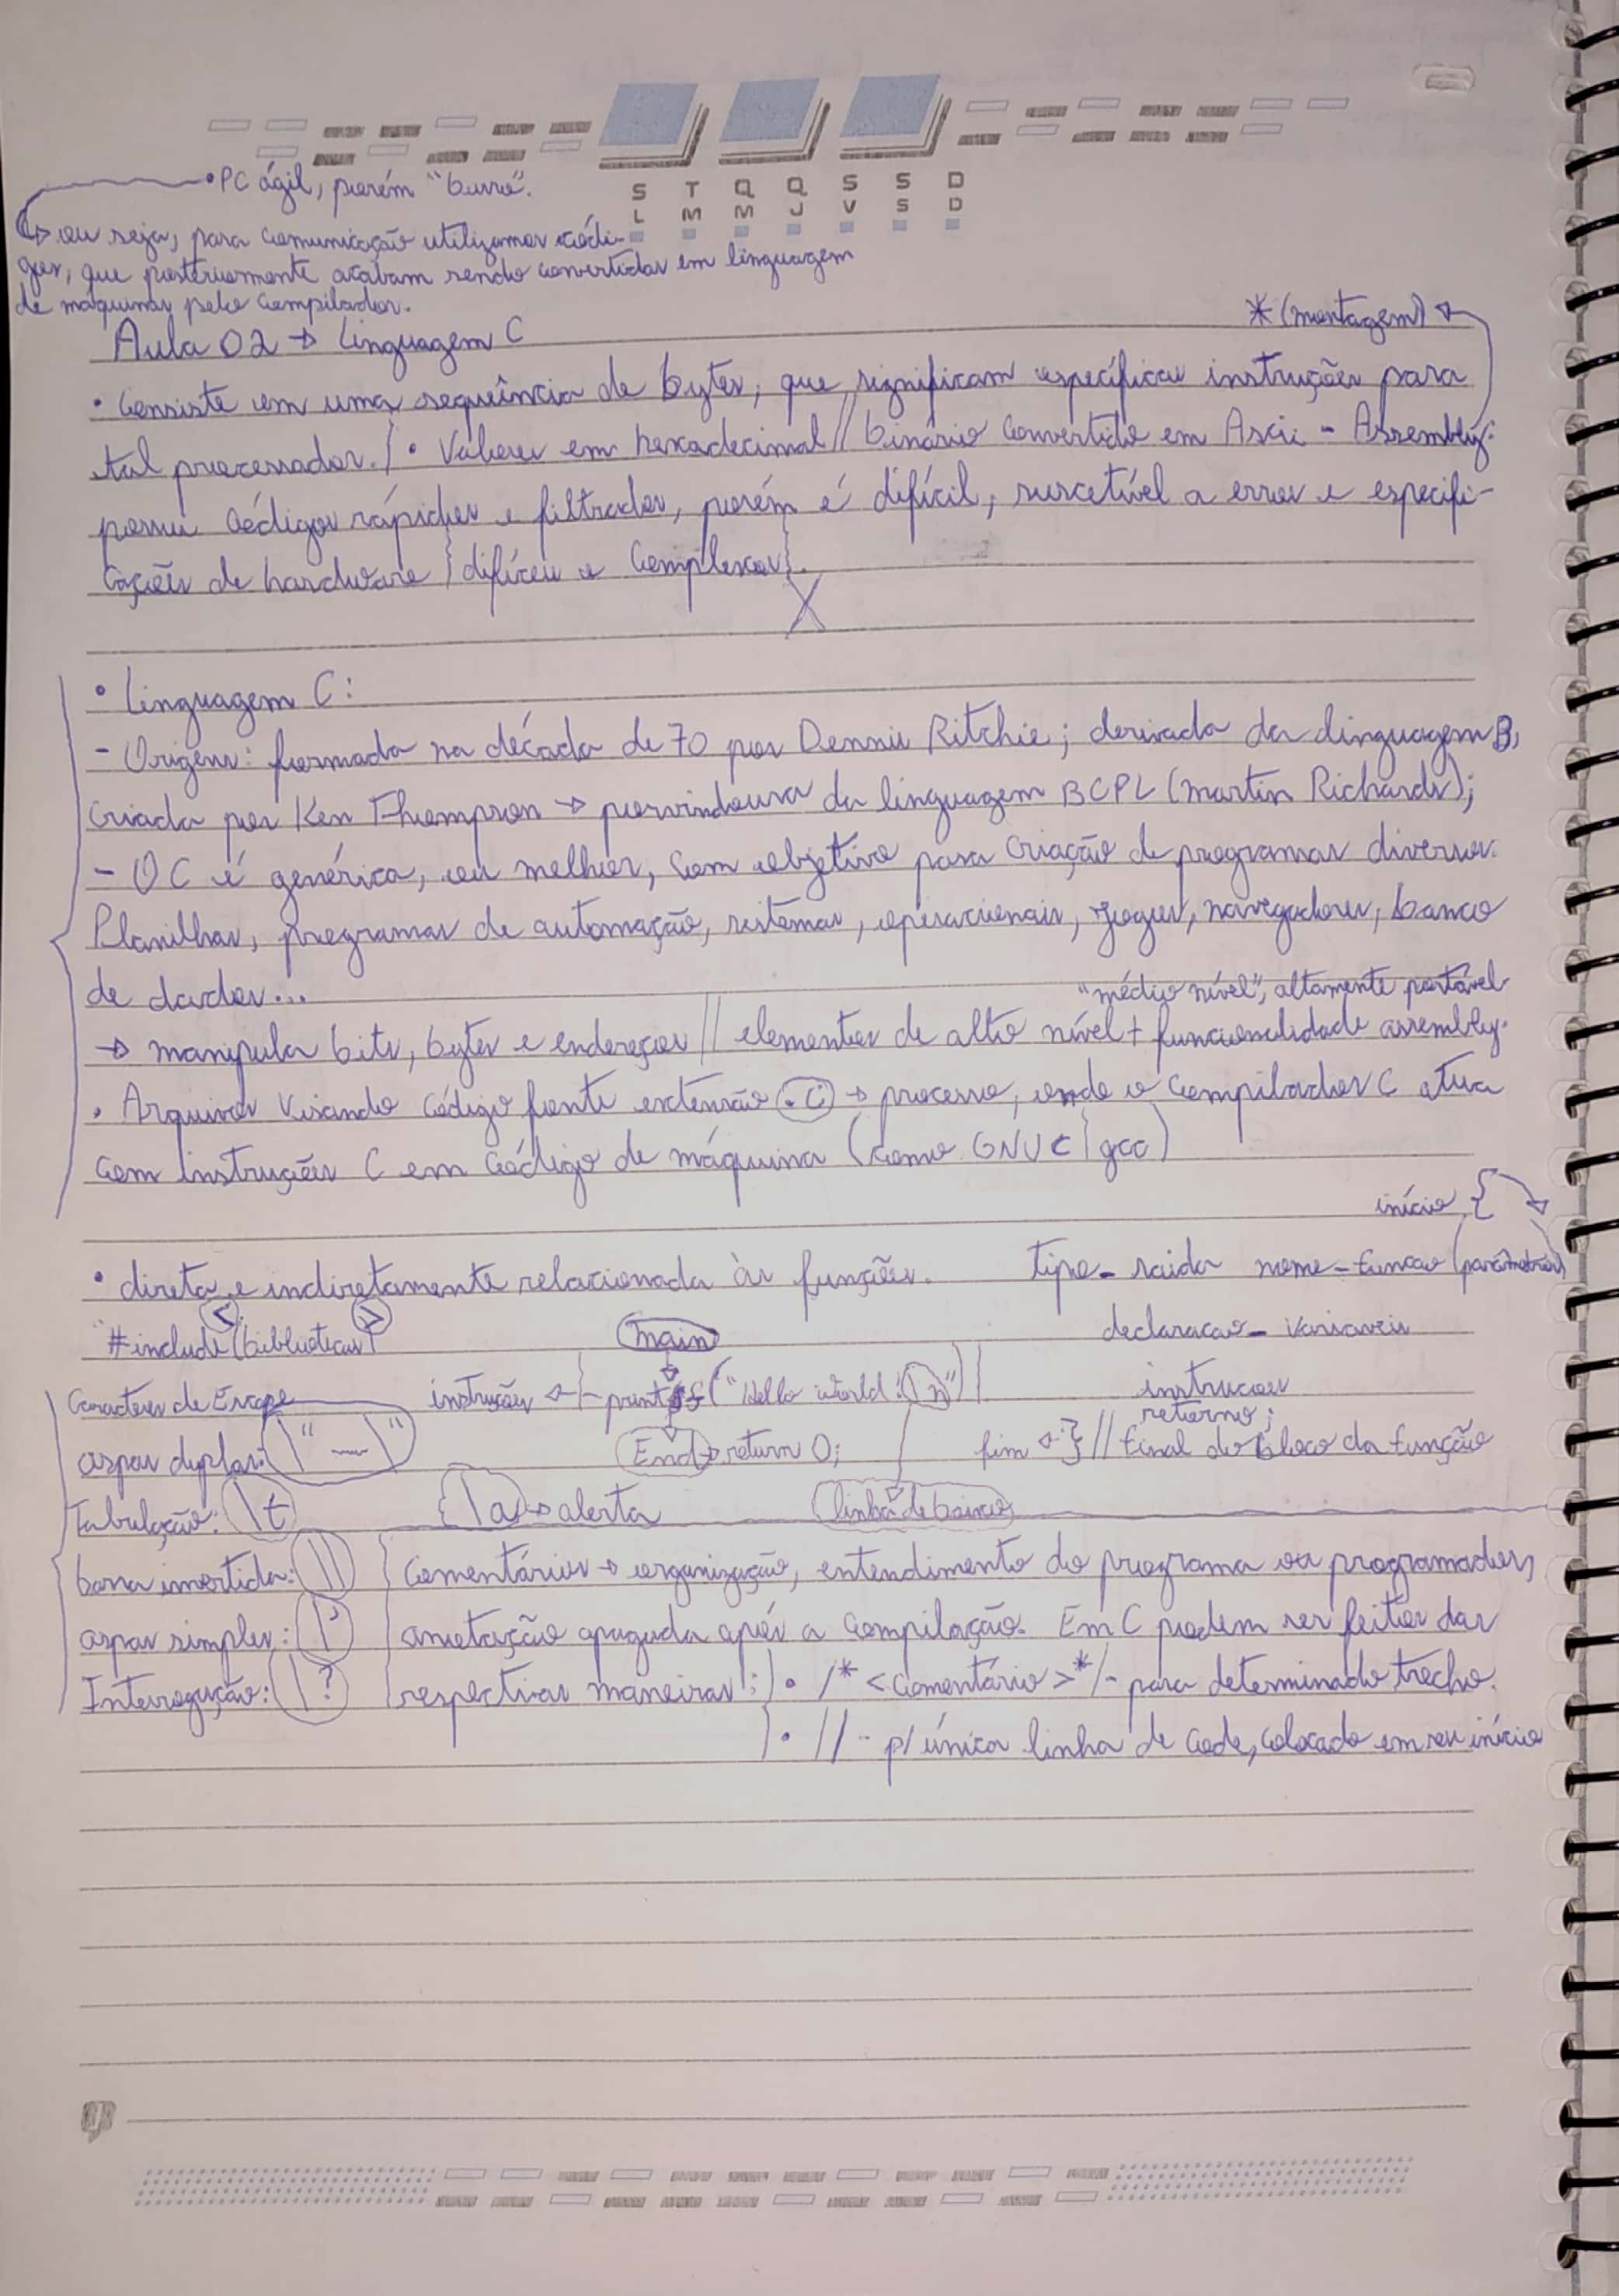 S T Q Q S S D
L M M J V S D
• PC ágil, porém "burro".
↳ ou seja, para comunicação utilizamos códi-
gos, que posteriormente acabam sendo convertidos em linguagem
de máquinas pelo compilador.
* (montagem)
Aula 02 → Linguagem C
• Consiste em uma sequência de bytes, que significam específicas instruções para
tal processador. } • Valores em hexadecimal // binário convertido em Ascii - Assembly:
possui códigos rápidos e filtrados, porém é difícil, suscetível a erros e especifi-
cações de hardware } difíceis e complexas }.
X
• Linguagem C:
- Origens: formada na década de 70 por Dennis Ritchie; derivada da linguagem B,
criada por Ken Thompson → porvindoura da linguagem BCPL (Martin Richards);
- O C é genérica, ou melhor, com objetivo para criação de programas diversos:
Planilhas, programas de automação, sistemas, operacionais, jogos, navegadores, banco
de dados...
"médio nível", altamente portável
→ manipula bits, bytes e endereços // elementos de alto nível + funcionalidade assembly.
• Arquivos visando código fonte extensão .C → processo, onde o compilador C atua
com instruções C em código de máquina (como GNU C | gcc)
início {
• direta e indiretamente relacionada às funções. tipo_saida nome-funcao (parâmetros)
< >
#include (bibliotecas) main declaracao_variaveis
Caracteres de Escape instruções ← { - printf ("Hello world! \n") } instrucoes
retorno;
aspas duplas: \" — \" End → return 0; fim ← } // final do bloco da função
Tabulação: \t { \a → alerta linha de baixo
barra invertida: \\ { Comentários → organização, entendimento do programa ou programador,
aspas simples: \' anotação apagada após a compilação. Em C podem ser feitos das
Interrogação: \? respectivas maneiras: } • /* <comentário> */ - para determinado trecho.
} • // - p/ única linha de code, colocado em seu início